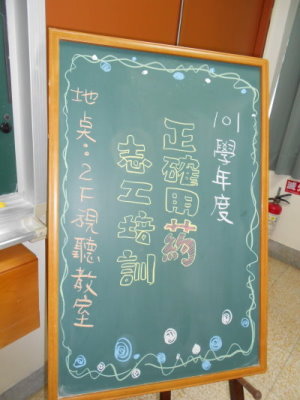 101學年度
正確用葯
志工培訓
地桌:2F視聽教室